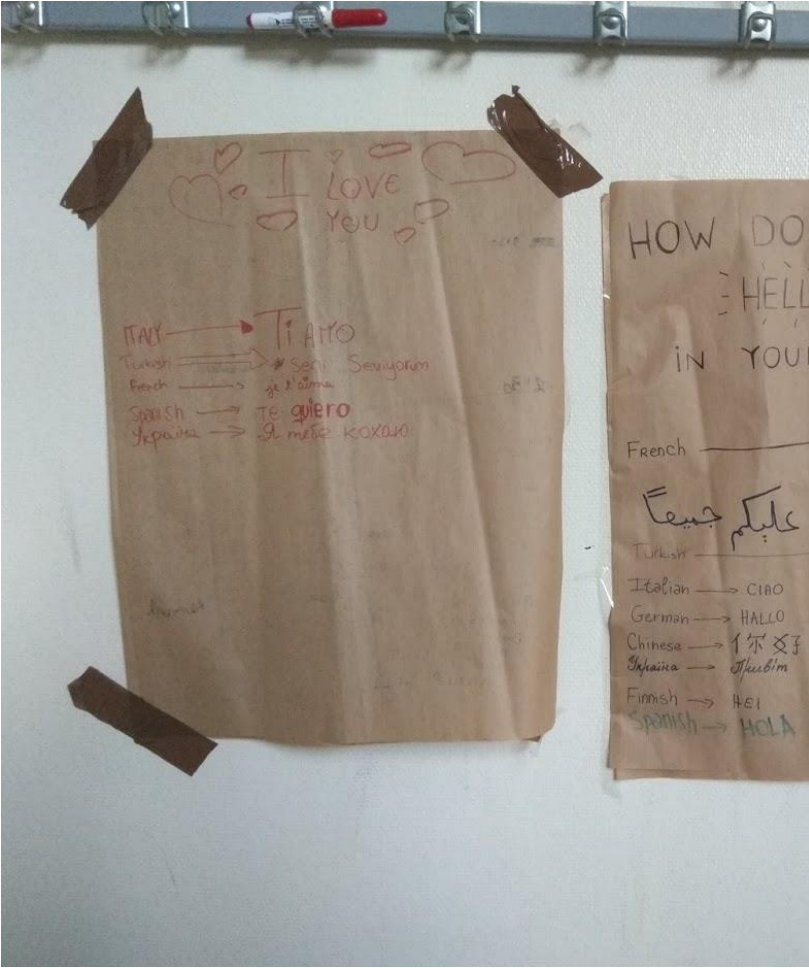 I LOVE
YOU
ITALY Ti AMO
Turkish Seni Seviyorum
French je t'aime
Spanish Te quiero
Україна Я тебе кохаю
HOW DO
HELL
iN YOU
French
عليكم جميعاً
Turkish
Italian CIAO
German HALLO
Chinese 你好
Україна Привіт
Finnish HEI
Spanish HOLA